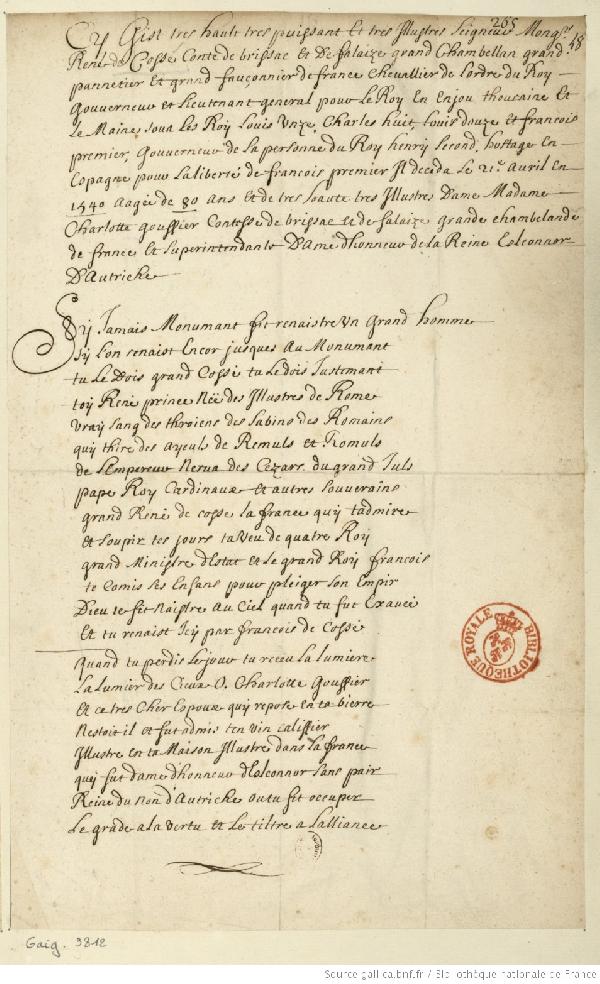 265
48
Cy Gist tres haute tres puissant Et tres Illustres Seigneur Mongr
René de Cosse Conte de brissac et De falaize grand Chambellan grand
pannetier Et grand fauçonnier de france Chevallier de lordre du Roy
Gouverneur et Lieutenant general pour Le Roy En Enjou thouraine Et
Le Maine sous Les Roy Louis Unze, Charles huit, Louis douze et francois
premier, gouverneur de la personne du Roy henry Second, hostage En
Espagne pour La liberté de francois premier Il deceda Le 21e Avril En
1540 aagée de 80 ans Et de tres haute tres Illustres Dame Madame
Charlotte gouffier Contesse de brissac et de falaize grande chambelande
de france Et Superintendante Dame dhonneur de la Reine Eleonnor
D'Autriche
Sy Jamais Monumant fit renaistre Un grand homme
Sy Lon renaist Encor jusques Au Monumant
tu Le Dois grand Cossé tu Le dois Justemant
toy René prince Née des Illustres de Rome
Vray Sang des throiens des Sabins des Romains
quy thire des ayeuls de Remuls et Romuls
de L'Empereur Nerva des Cezars, du grand Juls
pape Roy Cardinaux et autres Souverains
grand René de cosse la france quy t'admire
et Soupir tes jours ta Veu de quatre Roy
grand Ministre d'Estat et Le grand Roy francois
te Comis Ses Enfans pour pleiger Son Empir
Dieu te fit Naistre Au Ciel quand tu fut
Et tu renaist Icy par francois de Cossé
Quand tu perdis Le jour tu receu La lumiere
La Lumier des Cieux O. Charlotte Gouffier
Et ce tres Cher Espoux quy repose en ta bierre
Illustre en ta Maison Illustre dans la france
quy fut dame d'honneur d'Eleonnor Sans pair
Reine du Nom d'Autriche ou tu fit occuper
Le grade a la Vertu et Le tiltre a Lalliance
BIBLIOTHEQUE ROYALE
Gaig. 9812
Source gallica.bnf.fr / Bibliothèque nationale de France